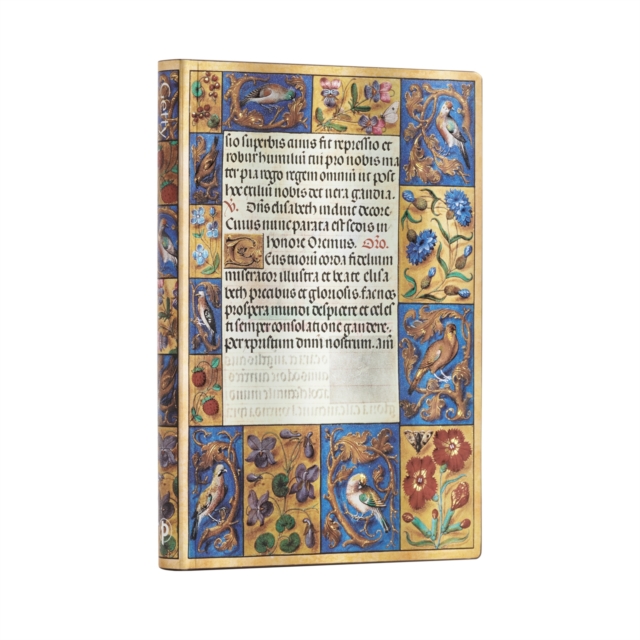 Getty
sio superbis cuius fit repressio et
robur humiliū tui pro nobis ma
ter pia rogo regem omniū ut post
hoc exiliū nobis det vera gaudia.
V. elisabeth induit decore.
Cuius nunc parata est sedis in
honore Oremus. Oro.
Deus tuorū corda fidelium
miserator illustra et beate elisa
beth precibus et gloriosis. fac nos
prospera mundi despicere et celes
ti semper consolatione gaudere.
per xpristum dnm nostrum. am